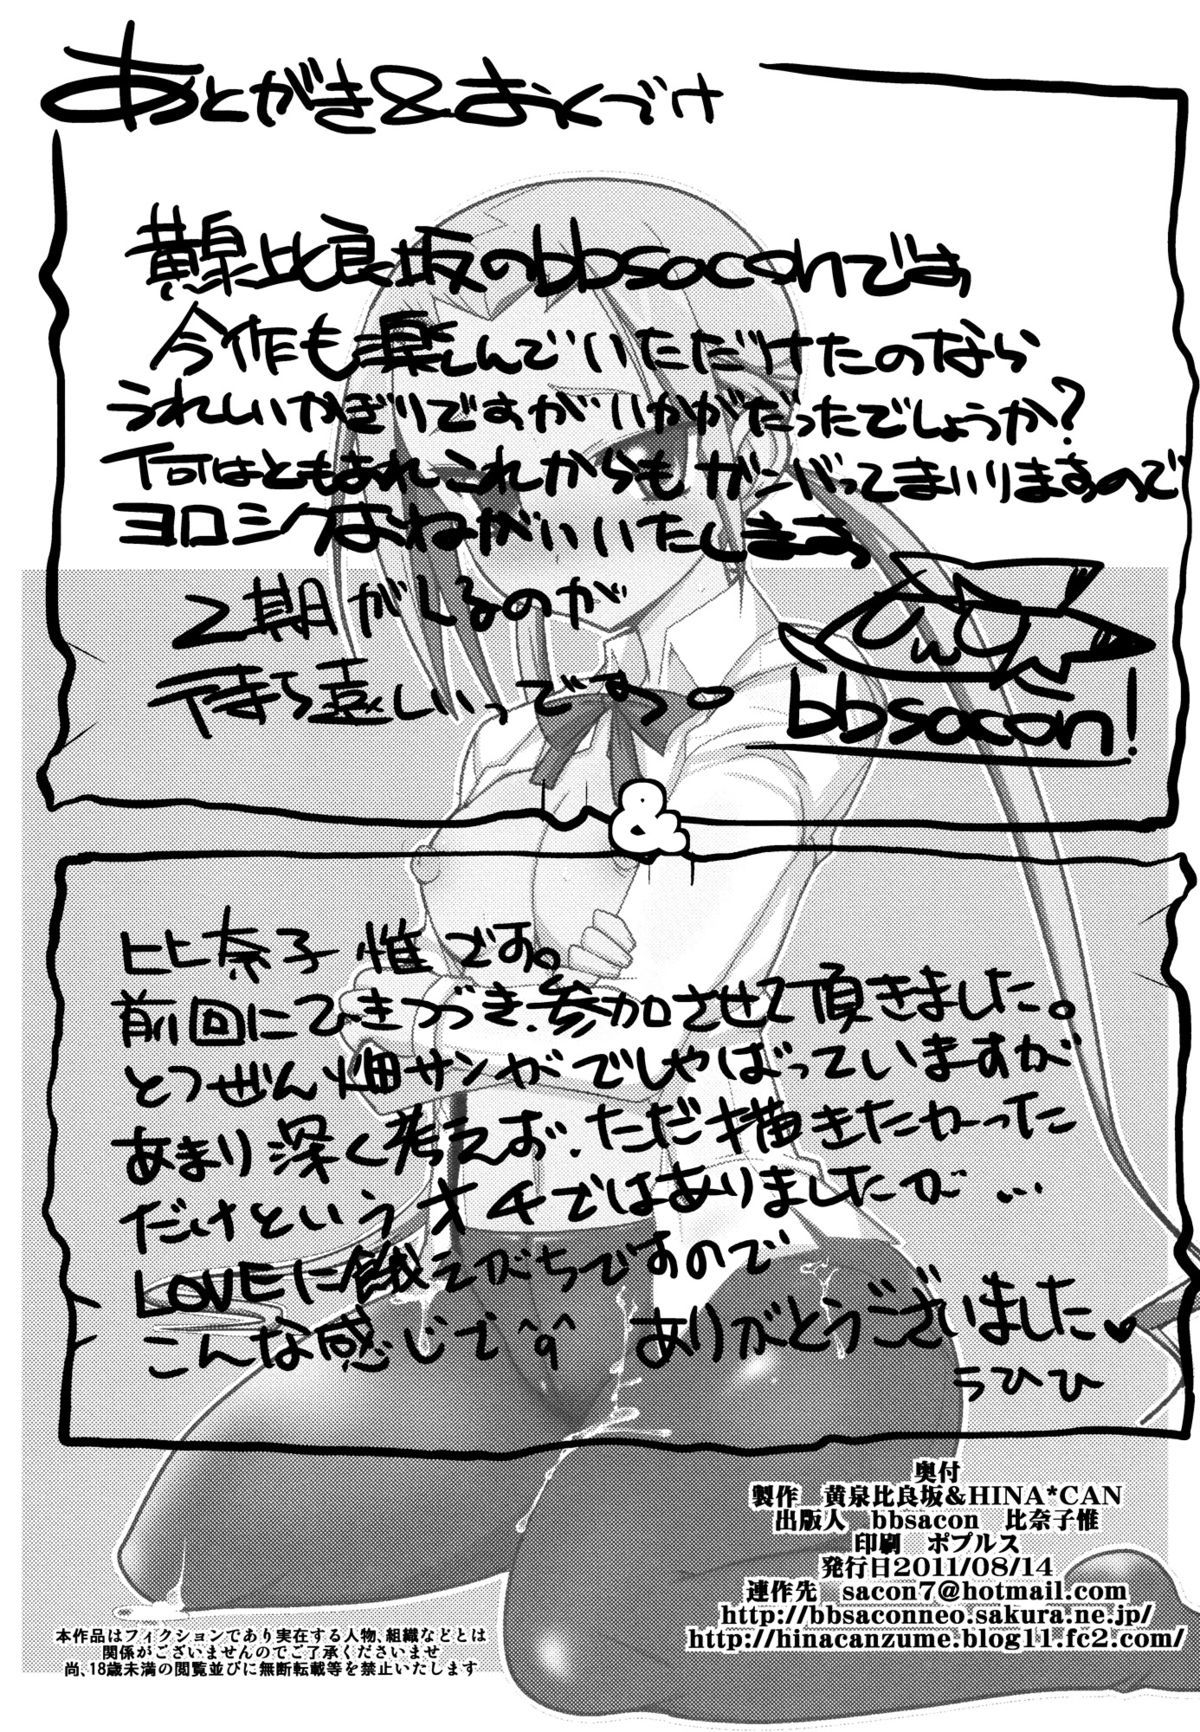 あとがき&おくづけ
黄泉比良坂のbbsaconです
今作も楽しんでいただけたのなら
うれしいかぎりですがいかがだったでしょうか?
何はともあれこれからもガンバってまいりますので
ヨロシクおねがいいたします
2期がくるのが
待ち遠しいっですっ。
bbsacon!
&
比奈子 惟です。
前回にひきつづき、参加させて頂きました。
とつぜん畑サンがでしゃばっていますが
あまり深く考えお、ただ描きたかった
だけというオチではありましたが…
LOVEに餓えがちですので
こんな感じで^q^ ありがとうございました♥
うひひ
奥付
製作 黄泉比良坂&HINA*CAN
出版人 bbsacon 比奈子惟
印刷 ポプルス
発行日2011/08/14
連作先 sacon7@hotmail.com
http://bbsaconneo.sakura.ne.jp/
http://hinacanzume.blog11.fc2.com/
本作品はフィクションであり実在する人物、組織などとは
関係がございませんのでご了承くださいませ
尚、18歳未満の閲覧並びに無断転載等を禁止いたします